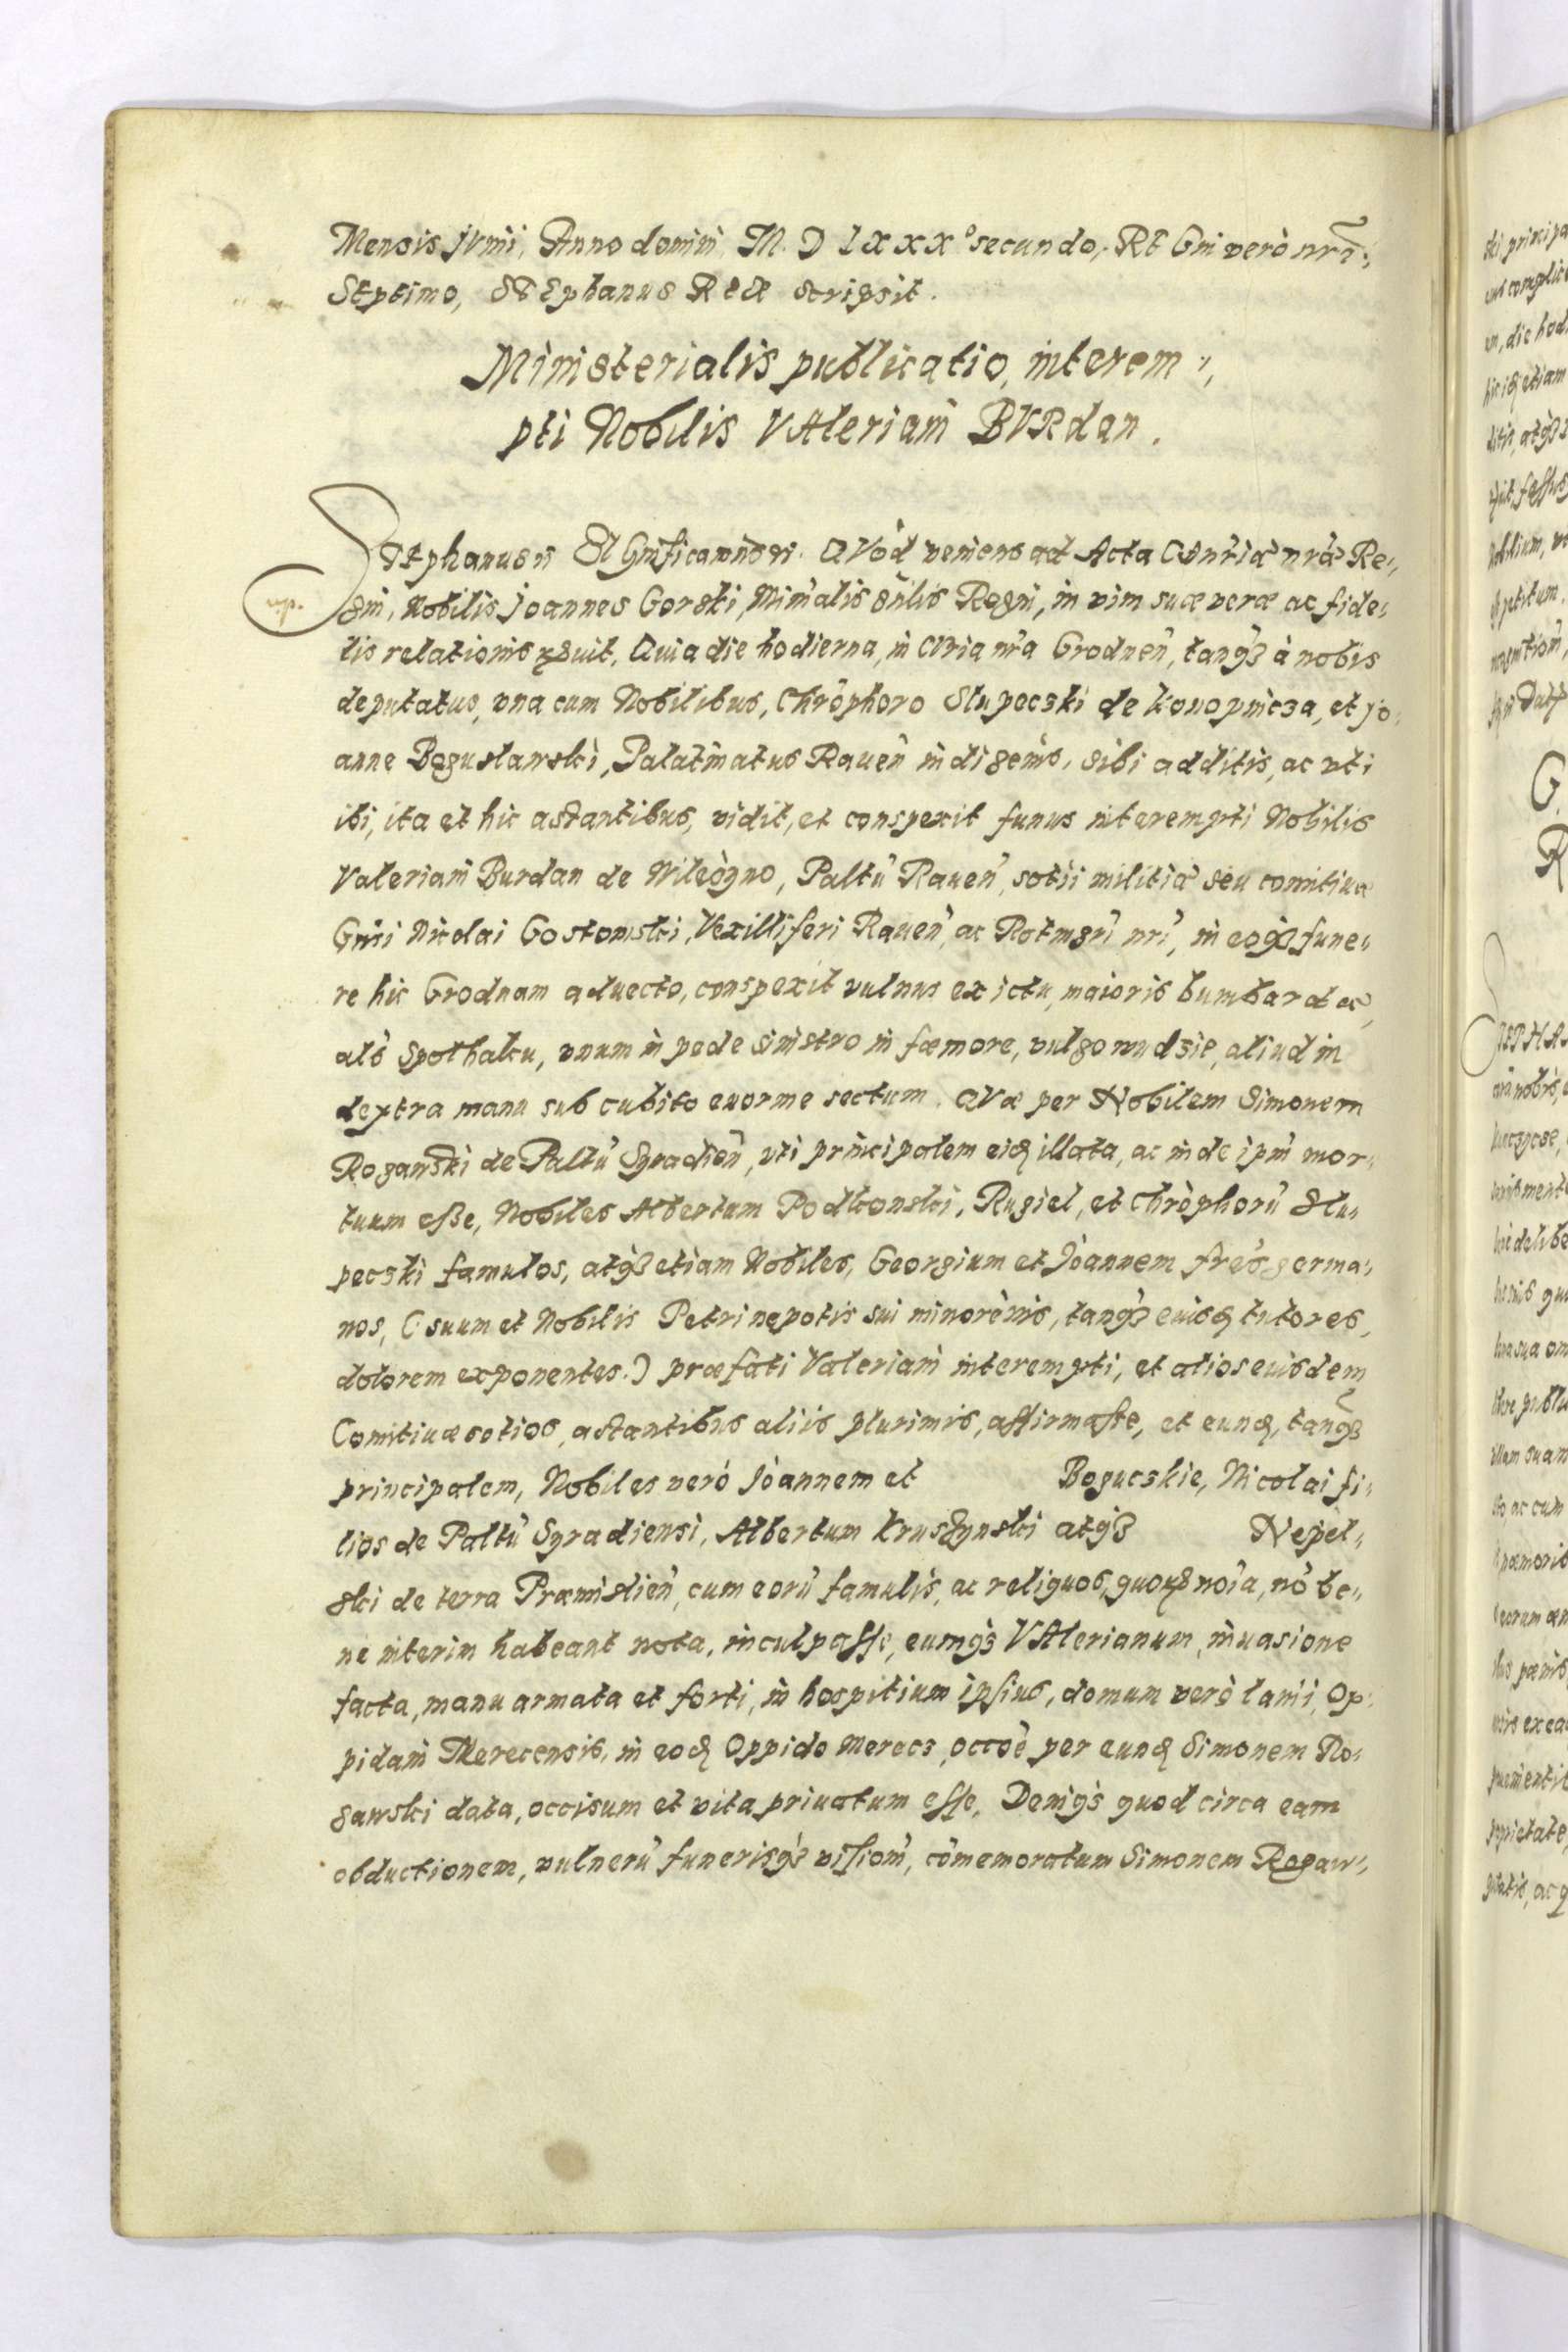 Mensis Junii, Anno domini M. D lxxx° secundo, Rt Gni verò nrĩ.
Septimo, Stephanus Rex scripsit.
Ministerialis publicatio, interem„
pti Nobilis VAleriani BVRdan.
Stephanus etc. Significamus etc. QVòd veniens ad Acta Curiæ nræ Re„
gni, Nobilis Joannes Gorski, Minalis gñlis Regni, in vim suæ veræ ac fide„
lis relationis, Quia die hodierna, in Curia nra Grodnen̄, tanq3 à nobis
deputatus, vna cum Nobilibus, Chrophoro Slupeczki de konopnicza, et Jo„
anne Boguslawski, Palatinatus Rauen̄ indigenis, sibi additis, ac vti
ibi, ita et hic astantibus, vidit, et conspexit funus interempti Nobilis
Valeriani Burdan de Wilcogno, Paltū Rauen̄, sotii militiæ seu comitiuæ
Gnsi Nicolai Gostomski, Vexilliferi Rauen̄, ac Rotmgri nri, in eoq3 fune„
re hic Grodnam aduecto, conspexit vulnus ex ictu, maioris bumbardæ,
als Spolhaku, vnum in pede sinistro in fœmore, vulgo wudzie, aliud in
dextra manu sub cubito enorme sectum. QVæ per Nobilem Simonem
Rogawski de Paltū Syradien̄, vti principalem eid illata, ac inde ipm mor„
tuum esse, Nobiles Albertum Podkonski, Rugiel, et Chrophorū Slu„
peczki famulos, atq3 etiam Nobiles, Georgium et Joannem fres germa„
nos, (suum et Nobilis Petri nepotis sui minorenis, tanq3 eiusd tutores,
dolorem exponentes.) præfati Valeriani interempti, et alios eiusdem
Comitiuæ sotios, astantibus aliis plurimis, affirmasse, et eund, tanq3
principalem, Nobiles verò Joannem et Boguczkie, Nicolai fi„
lios de Paltū Syradiensi, Albertum Krusgynski atq3 Nepel„
ski de terra Præmislien̄, cum eorū famulis, ac reliquos, quor noia, nō be„
ne interim habeant nota, inculpasse, eumq3 VAlerianum, inuasione
facta, manu armata et forti, in hospitium ipsius, domum verò lanii, Op„
pidani Merecensis, in eod Oppido Merecz, occoe per eund Simonem Ro„
gawski data, occisum et vita priuatum esse, Deniq3 quod circa eam
obductionem, vulnerū funerisq3 vision̄, cōmemoratum Simonem Rogaw„